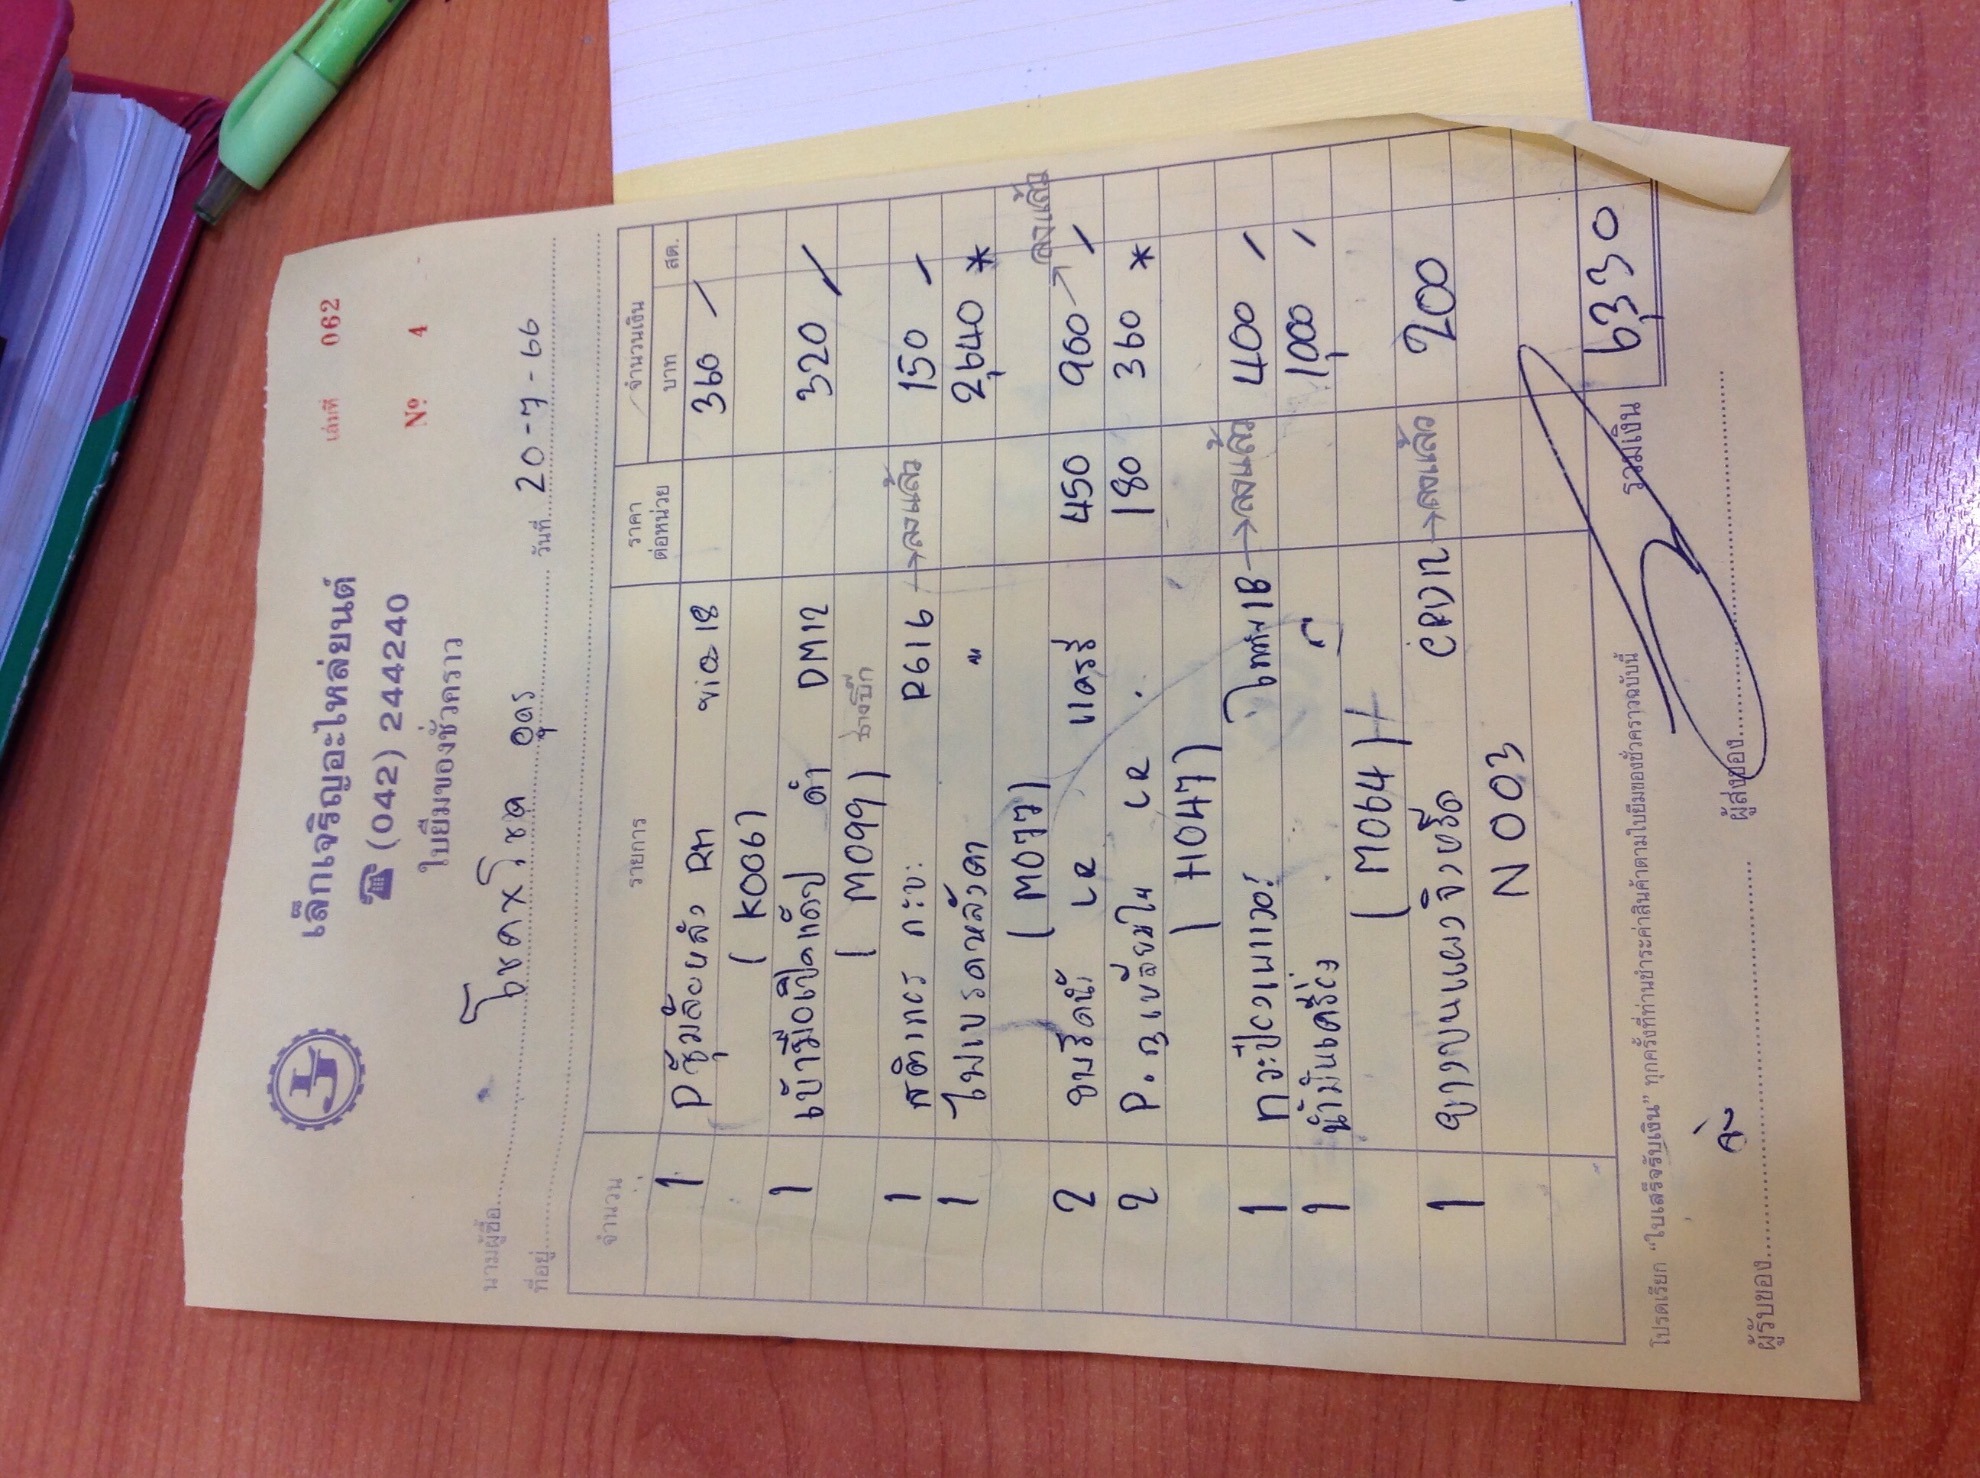 เล่มที่ 062
เล็กเจริญอะไหล่ยนต์
☎ (042) 244240
Nº 4
ใบยืมของชั่วคราว
นามผู้ซื้อ โชควิโชค อุดร
ที่อยู่ วันที่ 20-7-66
จำนวน รายการ ราคาต่อหน่วย จำนวนเงิน
บาท สต.
1 Pซุ้มล้อหลัง RH via 18 360 /
(K0067)
1 เบ้ามือเปิดแค็ป ดำ DM12 320 /
(M099) ช่างบิ๊ก
1 สติกเกอร์ กะบะ R616 → ลงแล้ว 150 /
1 ไฟเบรคหลังคา " 2,640 *
(M077)
2 LR แคร์รี่ 450 900 / → ลงแล้ว
2 LR 180 360 *
(H047)
1 → ลงแล้ว 400 /
1 น้ำมันเครื่อง 1,000 /
(M064)
1 → ลงแล้ว 200
N003
รวมเงิน 6,330
โปรดเรียก "ใบเสร็จรับเงิน" ทุกครั้งที่ท่านชำระค่าสินค้าตามใบยืมของชั่วคราวฉบับนี้
ผู้รับของ ผู้ส่งของ